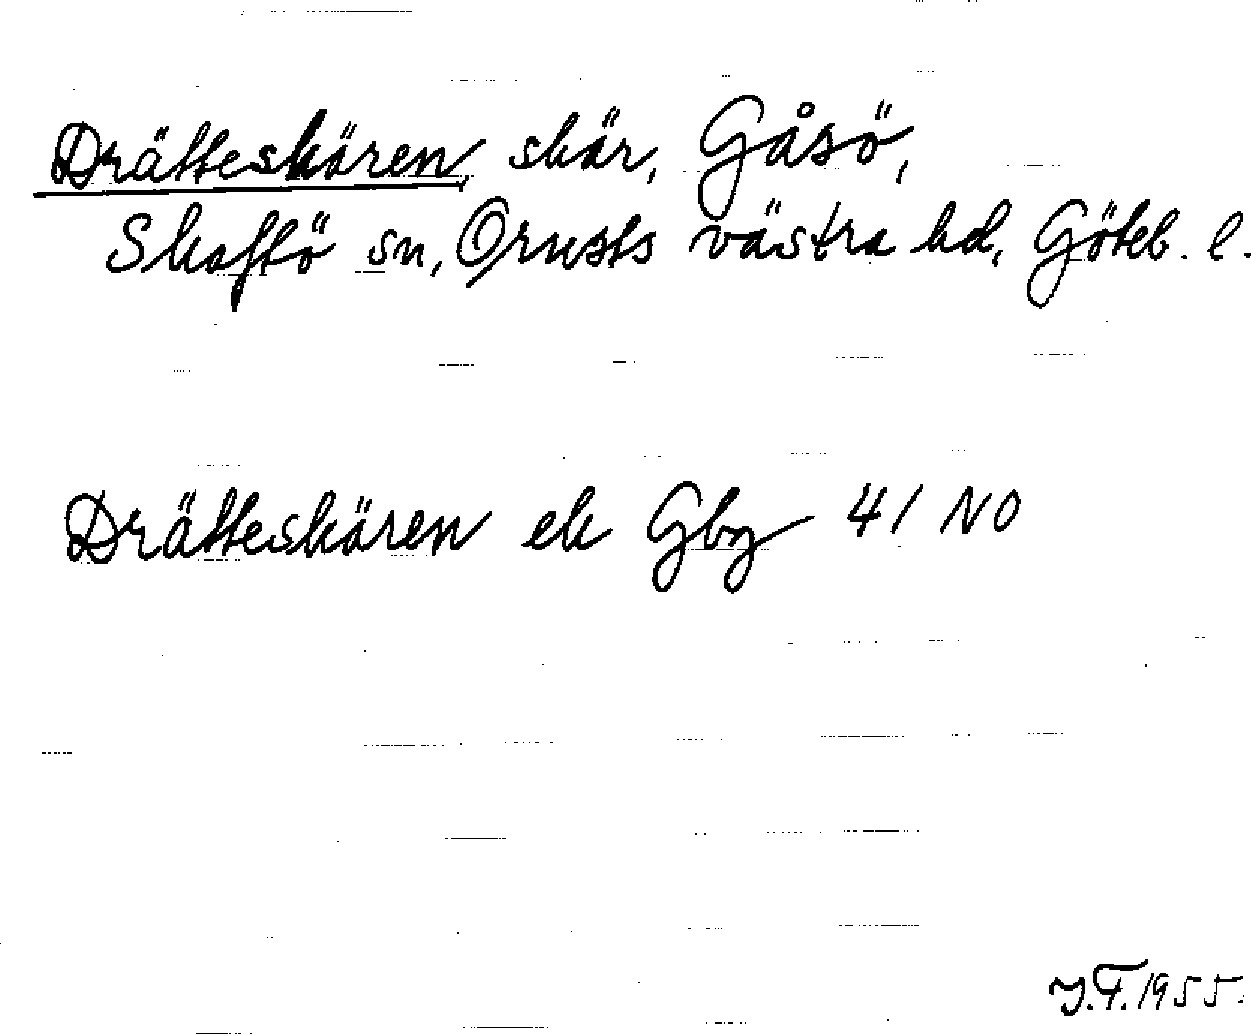 Drätteskären, skär, Gåsö,
Skaftö sn, Orusts västra hd, Göteb. l.
Drätteskären ek Gbg 41 NO
J.F. 1955.